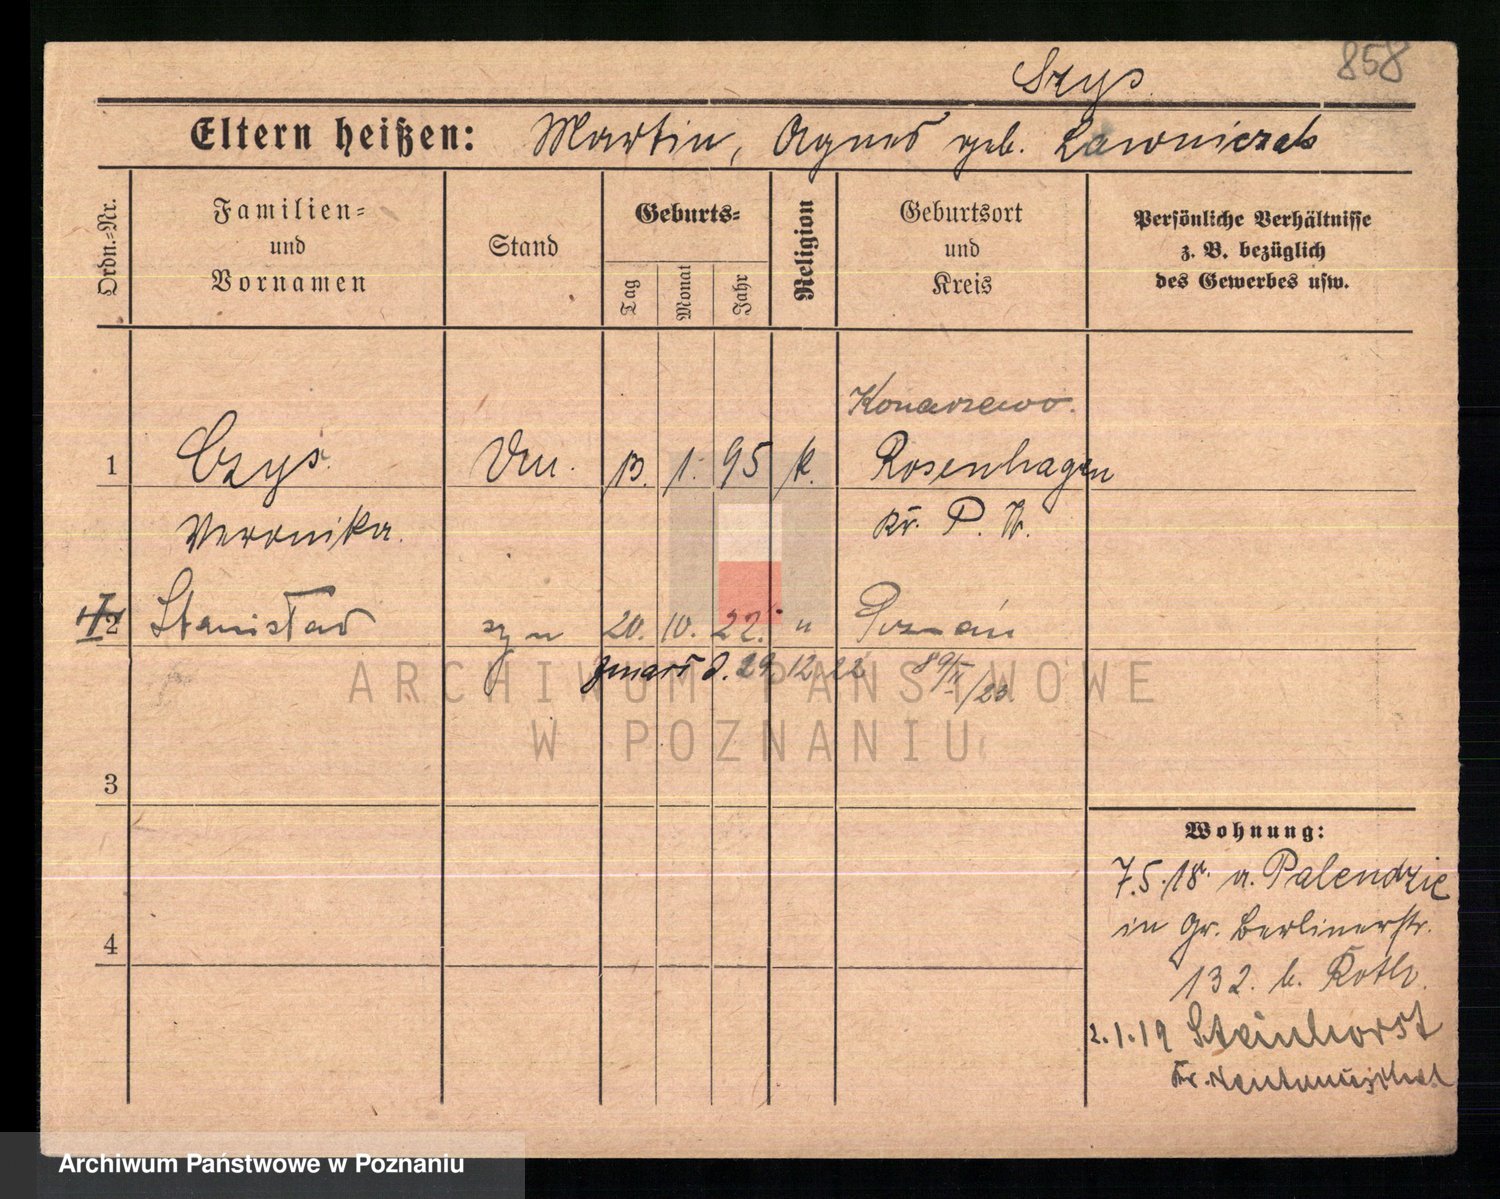 858
Szys
Eltern heißen: Martin, Agnes geb. Lawniczak
Ordn.=Nr.
Familien=
und
Vornamen
Stand
Geburts=
Tag
Monat
Jahr
Religion
Geburtsort
und
Kreis
Persönliche Verhältnisse
z. B. bezüglich
des Gewerbes usw.
Konarzewo.
1 Szys. 13. 1. 95 k. Rosenhagen
Veronika. Kr. P. W.
2 Stanisław syn 20. 10. 22. " Poznań
zmarł d. 29 12 22 89/II/23
ARCHIWUM PAŃSTWOWE
W POZNANIU
3
Wohnung:
7.5.18. a. Palendzie
in Gr. Berlinerstr.
4
132. b. Roth.
2.1.19 Steinhorst
Kr.
Archiwum Państwowe w Poznaniu